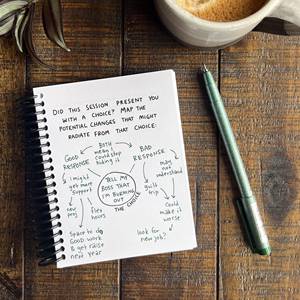 DID THIS SESSION PRESENT YOU
WITH A CHOICE? MAP THE
POTENTIAL CHANGES THAT MIGHT
RADIATE FROM THAT CHOICE:
BOTH
mean I
could stop
hiding it
GOOD
RESPONSE
BAD
RESPONSE
I might
get more
support
may
not
understand
TELL MY
BOSS THAT
I'M BURNING
OUT
THE CHOICE
new
proj
flex
hours
guilt
trip
Could
make it
worse
Space to do
Good work
& get raise
next year
look for
new job?